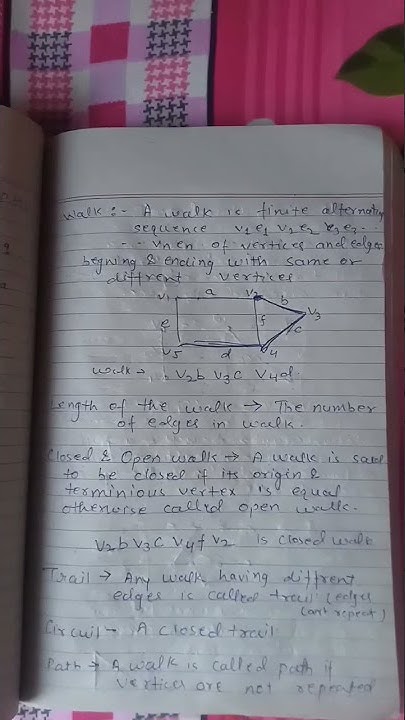 Walk :- A walk is finite alternating
sequence v1 e1 v2 e2 v3 e3 - -
- - vn en of vertices and edges
begning & ending with same or
diffrent vertices
v1 a v2 b
e f v3
c
v5 d v4
Walk → v2 b v3 c v4 d
Length of the walk → The number
of edges in walk.
Closed & Open walk → A walk is said
to be closed if its origin &
terminious vertex is equal
otherwise called open walk.
v2 b v3 c v4 f v2 is closed walk
Trail → Any walk having diffrent
edges is called trail (edges
can't repeat)
Circuit → A closed trail
Path → A walk is called path if
vertices are not repeated